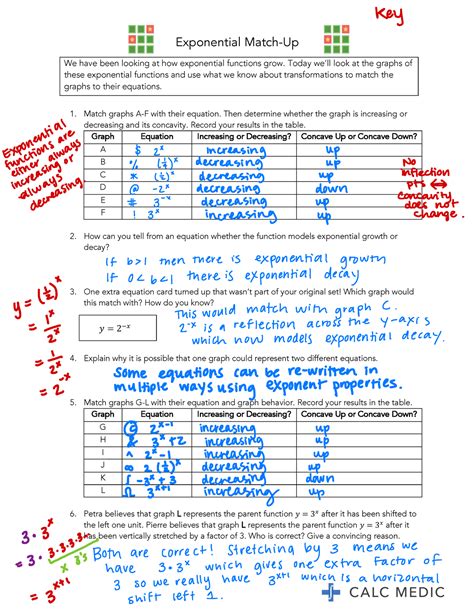 Key
Exponential Match-Up
We have been looking at how exponential functions grow. Today we'll look at the graphs of
these exponential functions and use what we know about transformations to match the
graphs to their equations.
1. Match graphs A-F with their equation. Then determine whether the graph is increasing or
decreasing and its concavity. Record your results in the table.
Exponential
functions are
either always
increasing or
always
decreasing.
Graph Equation Increasing or Decreasing? Concave Up or Concave Down?
A $ 2^x increasing up
B % (1/4)^x decreasing up
C * (1/2)^x decreasing up
D @ -2^x decreasing down
E # 3^-x decreasing up
F ! 3^x increasing up
No
inflection
pts ↔
concavity
does not
change.
2. How can you tell from an equation whether the function models exponential growth or
decay?
If b>1 then there is exponential growth
If 0<b<1 there is exponential decay
3. One extra equation card turned up that wasn't part of your original set! Which graph would
this match with? How do you know?
y = 2^-x
This would match with graph C.
2^-x is a reflection across the y-axis
which now models exponential decay.
y = (1/2)^x
= 1^x/2^x
= 1/2^x
= 2^-x
4. Explain why it is possible that one graph could represent two different equations.
Some equations can be re-written in
multiple ways using exponent properties.
5. Match graphs G-L with their equation and graph behavior. Record your results in the table.
Graph Equation Increasing or Decreasing? Concave Up or Concave Down?
G © 2^x-1 increasing up
H & 3^x+2 increasing up
I ^ 2^x-1 increasing up
J ∞ 2(1/4)^x decreasing up
K -3^x+3 decreasing down
L Ω 3^x+1 increasing up
6. Petra believes that graph L represents the parent function y = 3^x after it has been shifted to
the left one unit. Pierre believes that graph L represents the parent function y = 3^x after it
has been vertically stretched by a factor of 3. Who is correct? Give a convincing reason.
3·3^x
= 3·3·3·3·3
x 3's
= 3^x+1
Both are correct! Stretching by 3 means we
have 3·3^x which gives one extra factor of
3 so we really have 3^x+1 which is a horizontal
shift left 1.
CALC MEDIC